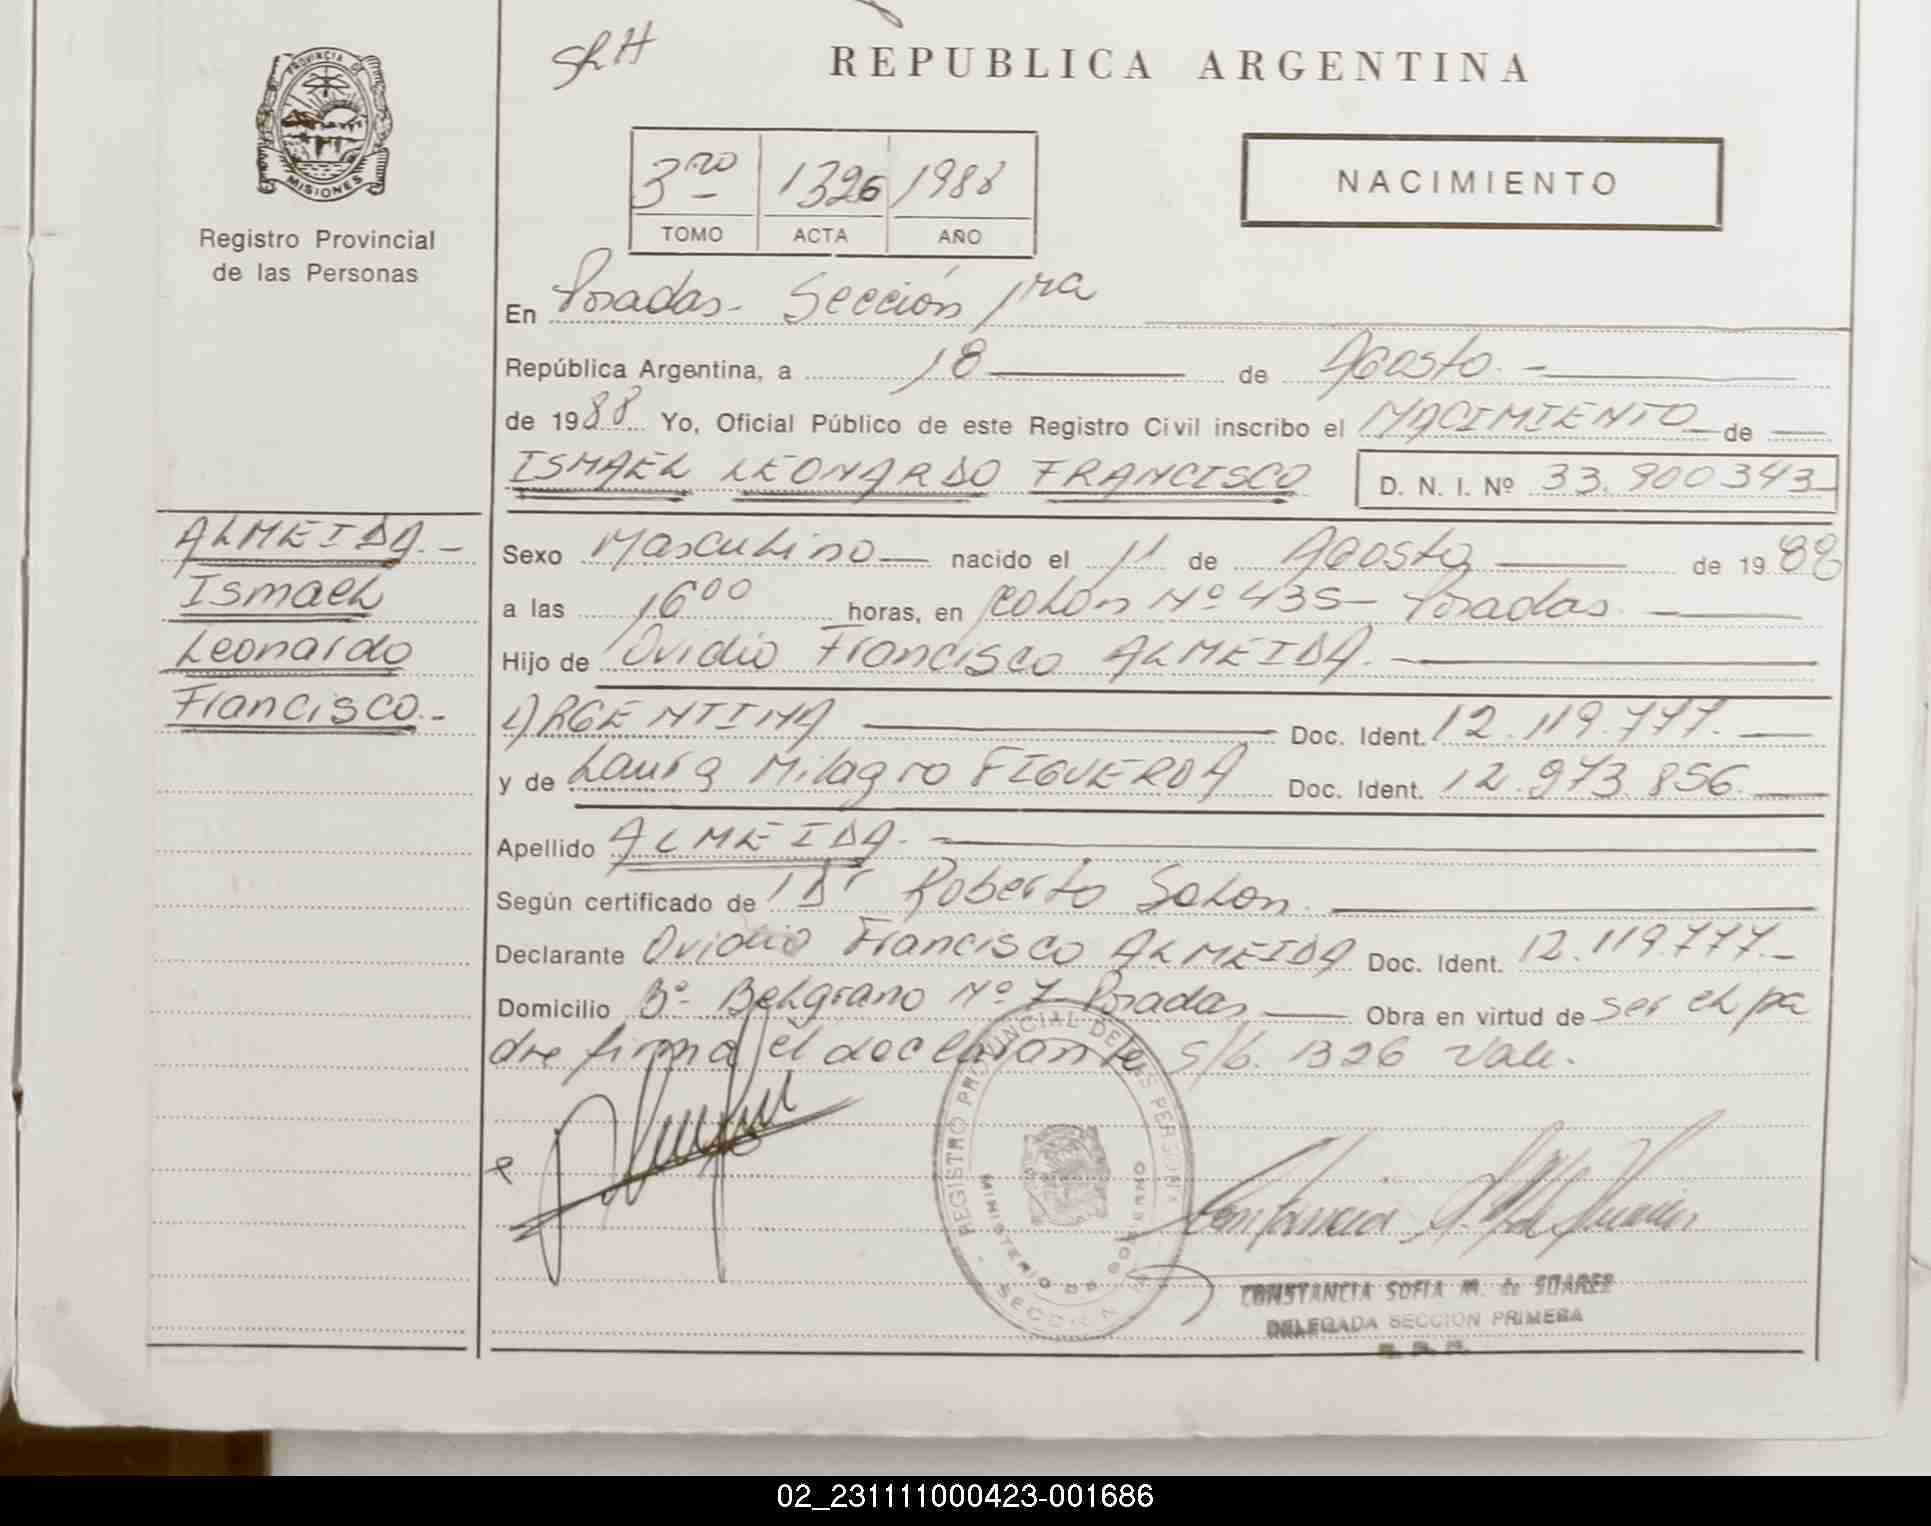 PROVINCIA DE
MISIONES
Registro Provincial
de las Personas
ALMEIDA.-
Ismael
Leonardo
Francisco.-
REPUBLICA ARGENTINA
3ro 1326 1988
TOMO ACTA AÑO
NACIMIENTO
En Posadas- Sección 1ra
República Argentina, a 18 de Agosto.-
de 1988 Yo, Oficial Público de este Registro Civil inscribo el NACIMIENTO de
ISMAEL LEONARDO FRANCISCO D. N. I. Nº 33.900343
Sexo Masculino nacido el 11 de Agosto de 1988
a las 16⁰⁰ horas, en Colón Nº 435- Posadas.-
Hijo de Ovidio Francisco ALMEIDA.-
ARGENTINA Doc. Ident. 12.119.777.
y de Laura Milagro FIGUEROA Doc. Ident. 12.973.856.
Apellido ALMEIDA.-
Según certificado de 1 Dr Roberto Solon.
Declarante Ovidio Francisco ALMEIDA Doc. Ident. 12.119.777.-
Domicilio Bº Belgrano Nº 7 Posadas Obra en virtud de ser el pa
dre firma el declarante S/b. 1326 Vale.
REGISTRO PROVINCIAL DE LAS PERSONAS
MINISTERIO DE GOBIERNO
SECCION
CONSTANCIA SOFIA M. de SUAREZ
DELEGADA SECCION PRIMERA
02_231111000423-001686